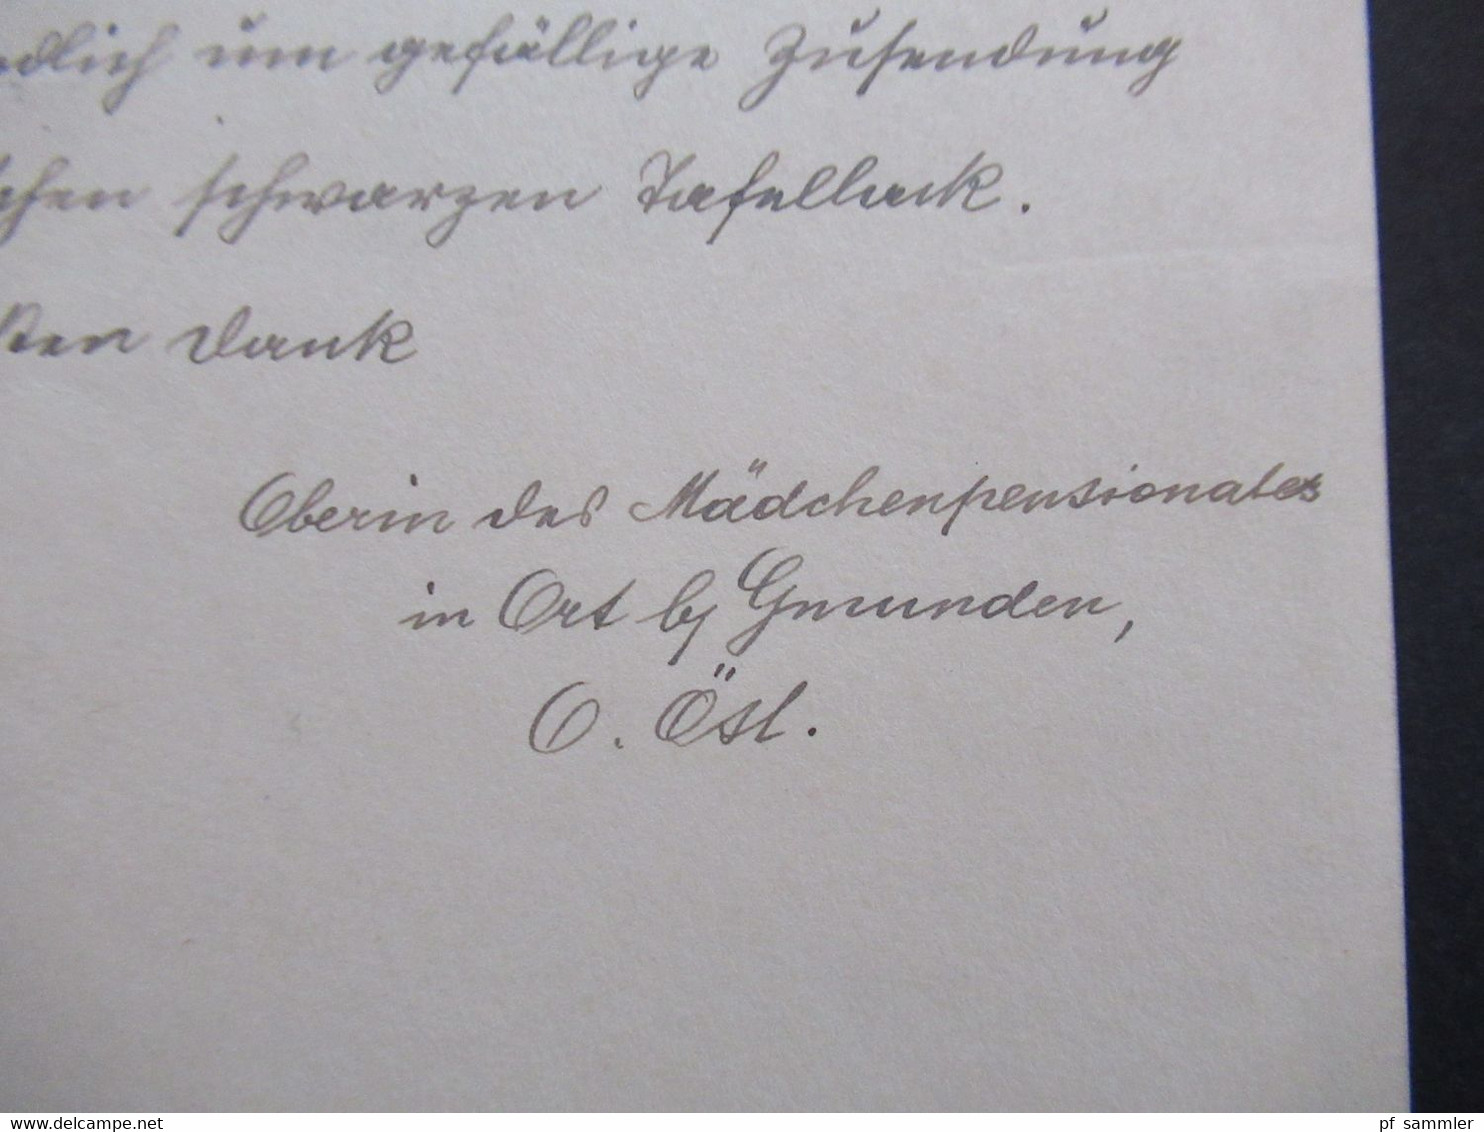 ndlich um gefällige Zusendung
chen schwarzen Tafellack.
sten Dank
Oberin des Mädchenpensionates
in Ort b/ Gmunden,
O. Öst.
www.delcampe.net
pf_sammler